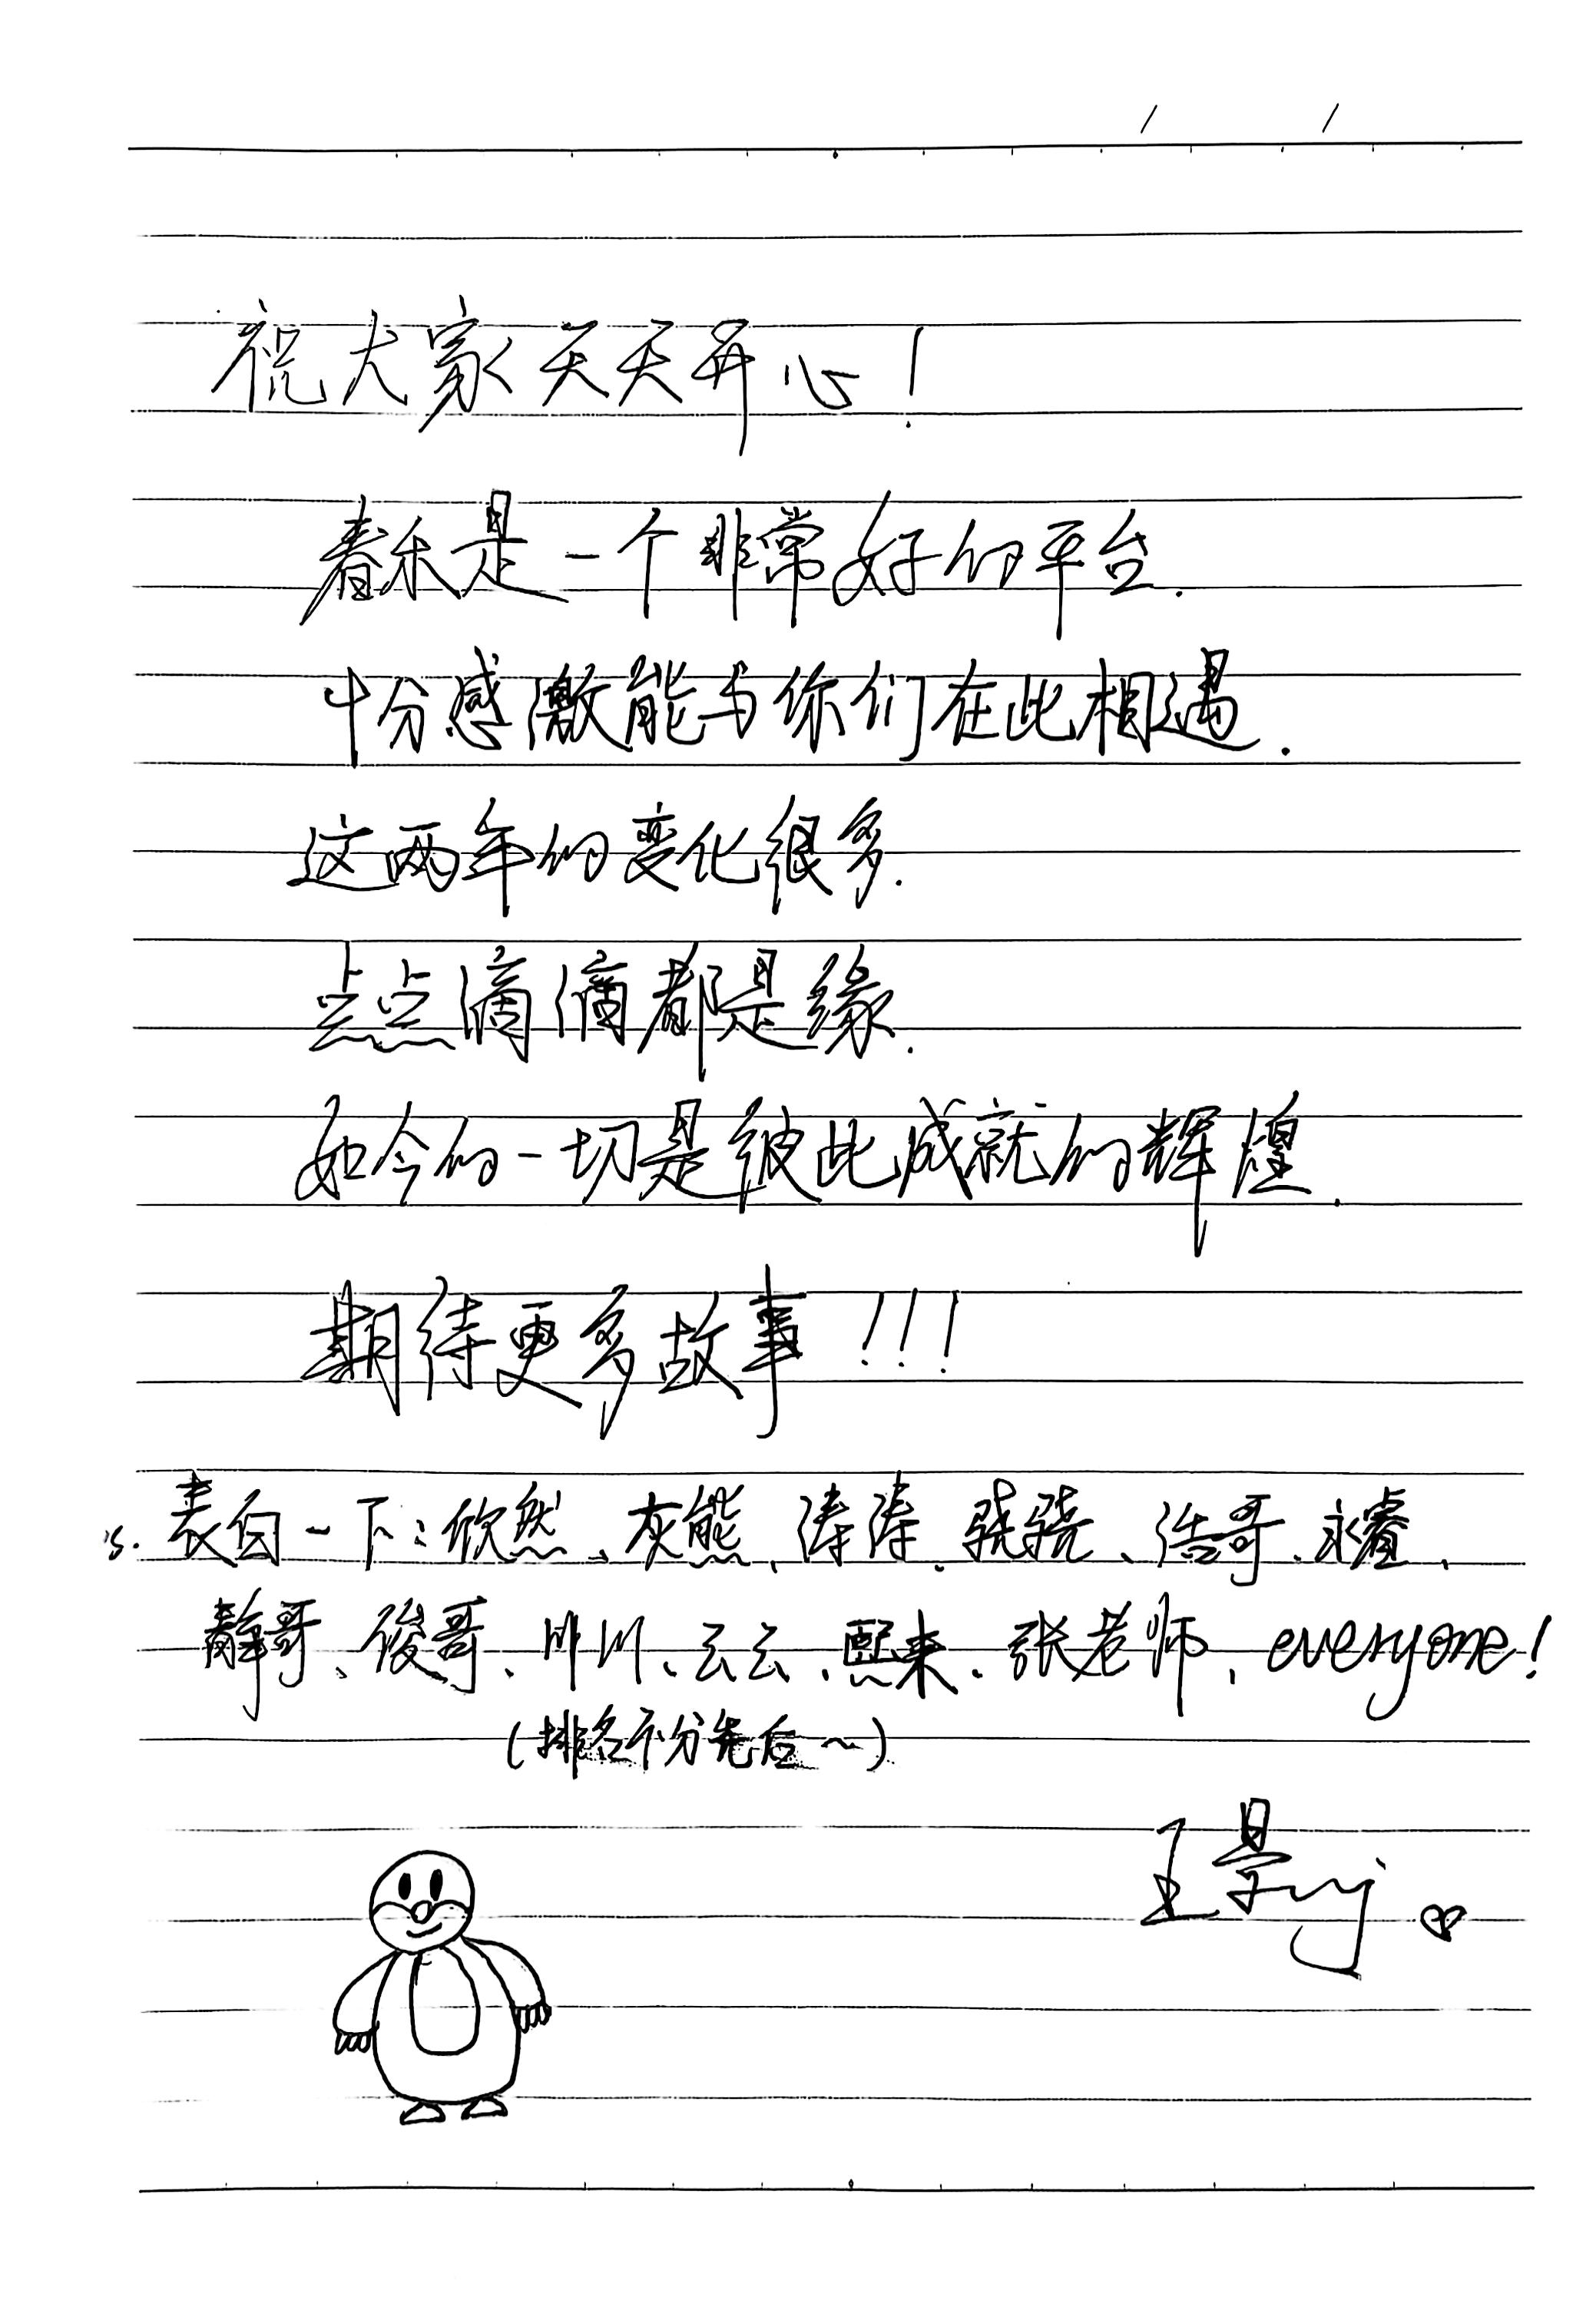 祝大家天天开心!
春禾是一个非常好的平台.
十分感激能与你们在此相遇.
这两年的变化很多.
点点滴滴都是缘.
如今的一切是彼此成就的辉煌.
期待更多故事!!!
s. 表白一下:欣然、灰熊、涛涛、骁骁、浩哥、永睿、
静哥、俊哥、川川、云云、熙来、张老师、everyone!
(排名不分先后~)
王景